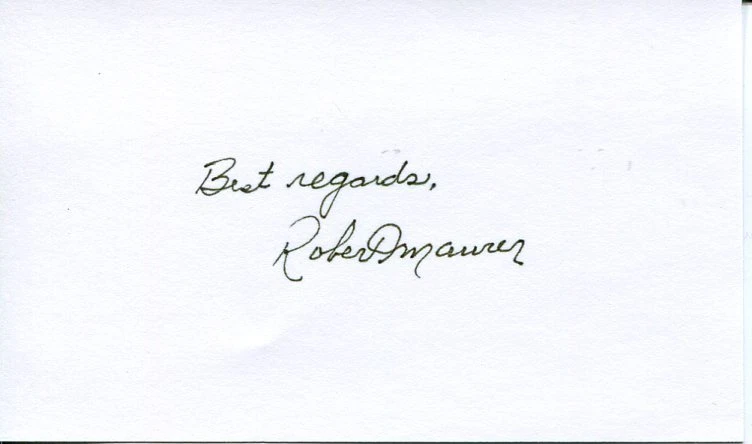 Best regards,
Robert Maurer